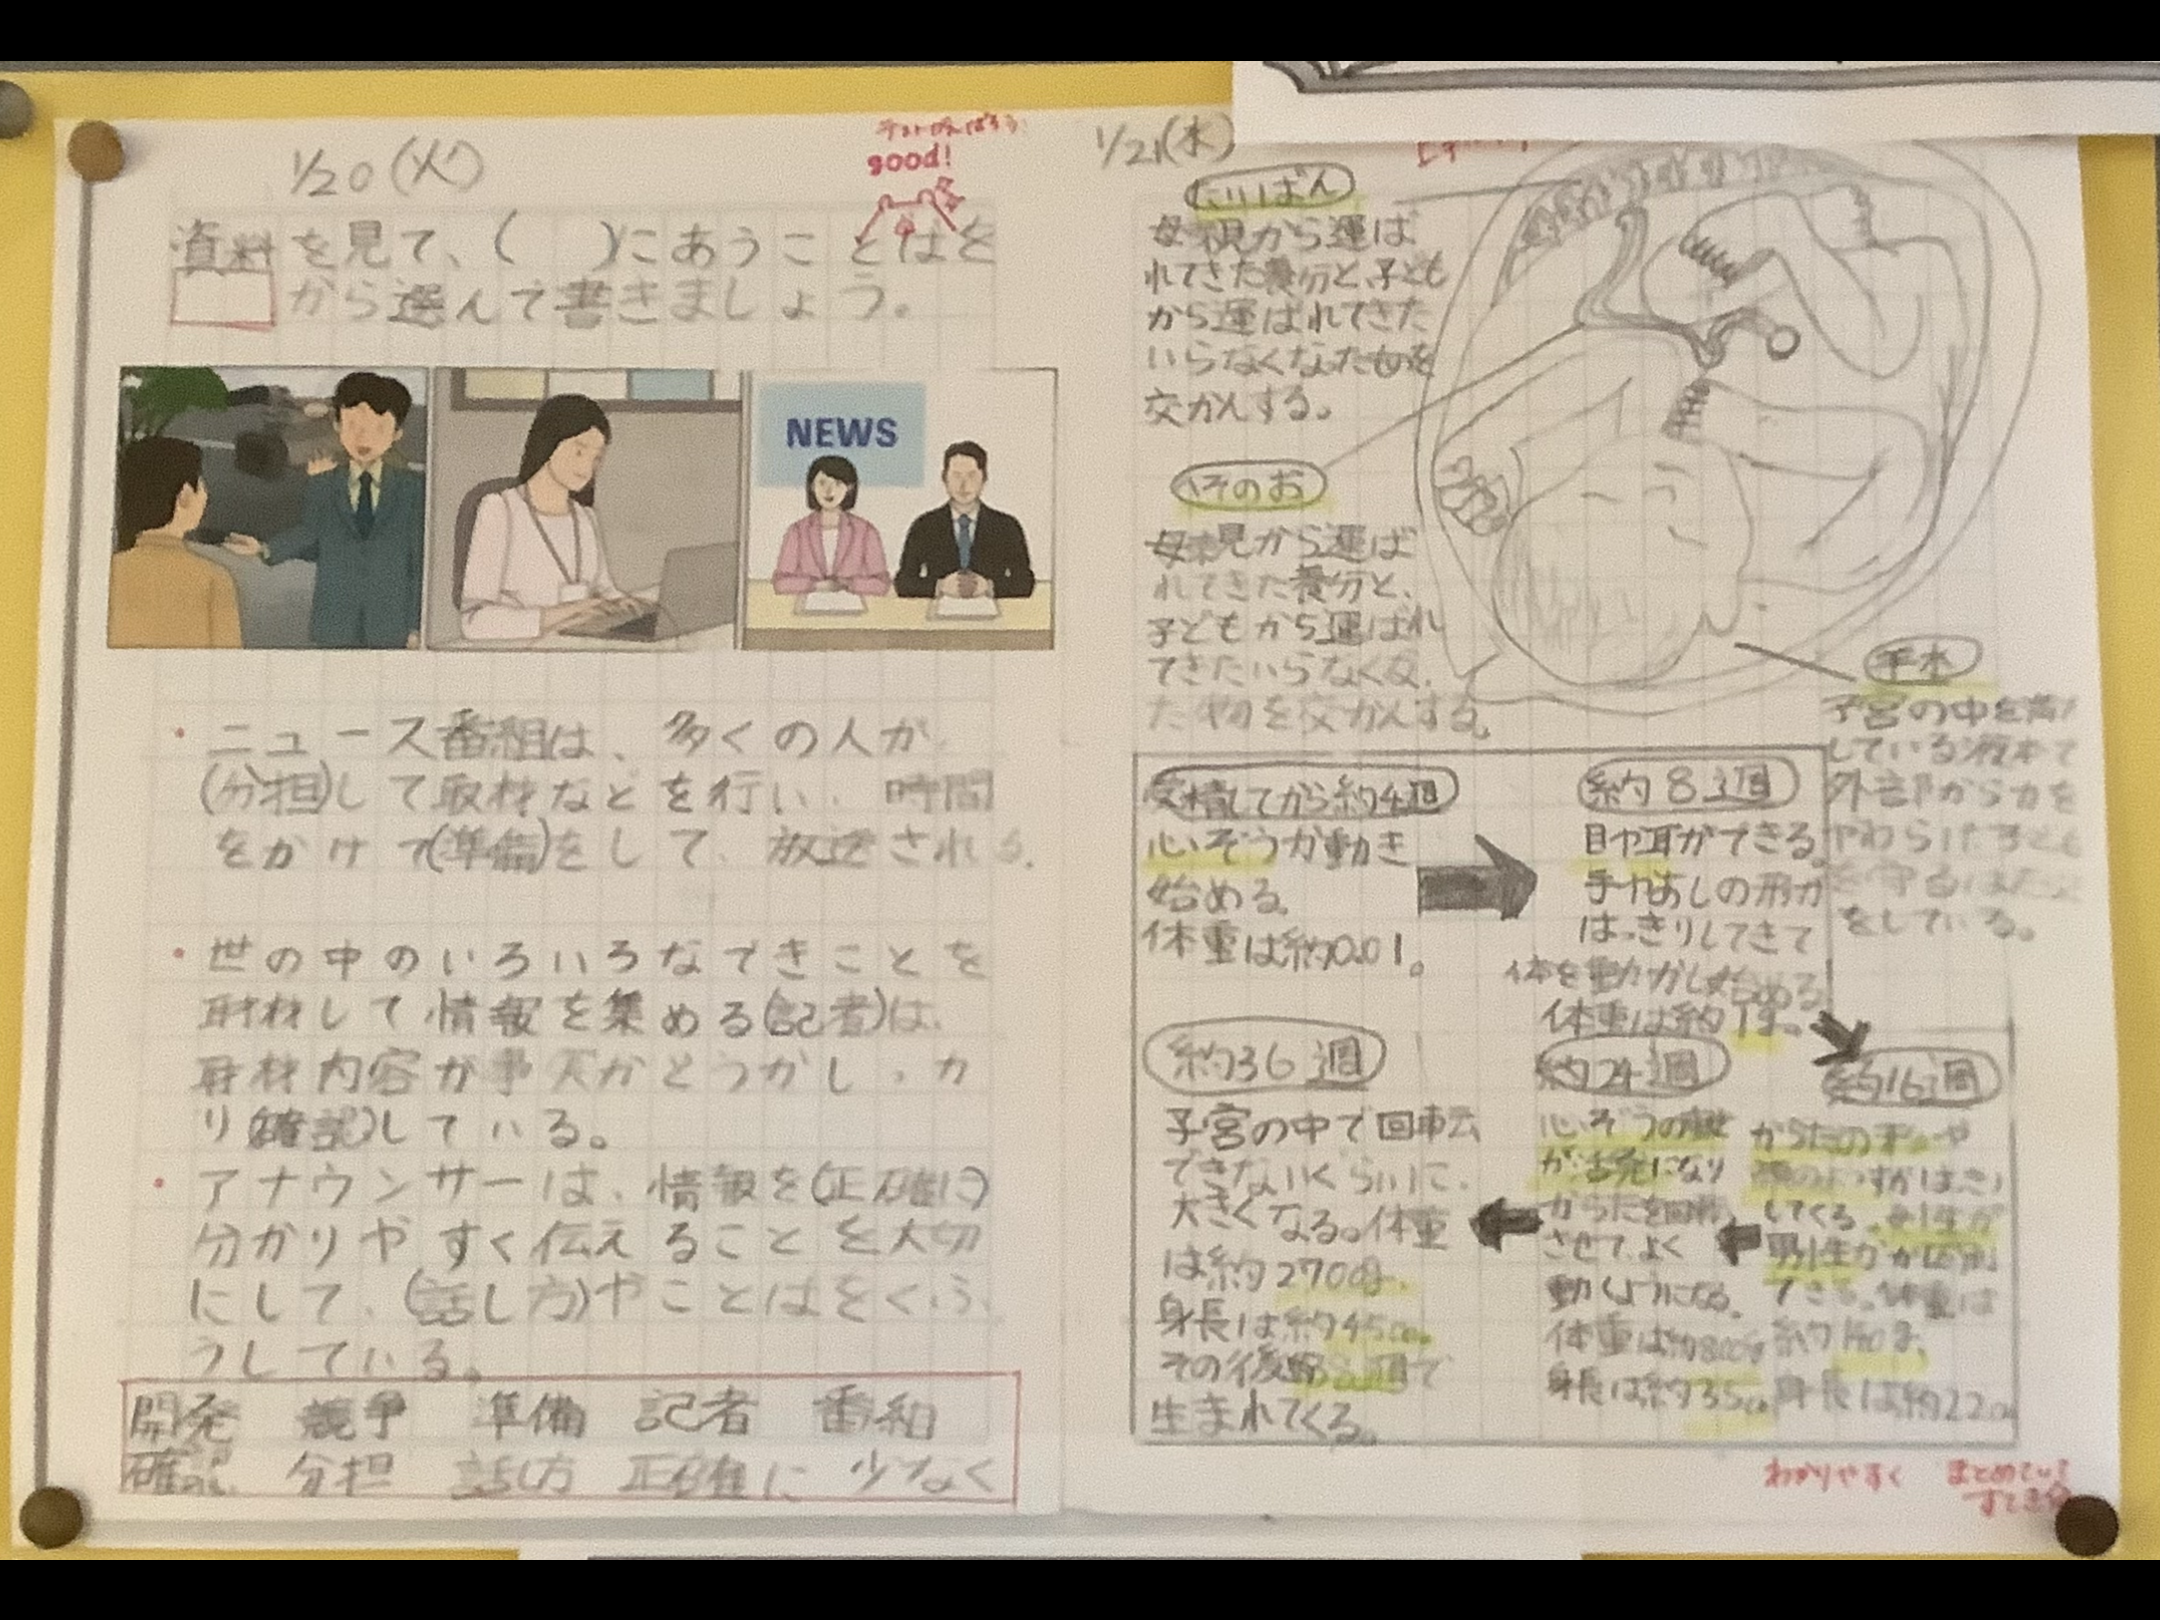 1/20(火)
good!
資料を見て、( )にあうことばを
から選んで書きましょう。
NEWS
・ニュース番組は、多くの人が
(分担)して取材などを行い、時間
をかけて(準備)をして、放送される。
・世の中のいろいろなできごとを
取材して情報を集める(記者)は、
取材内容が事実かどうかしっか
り(確認)している。
・アナウンサーは、情報を(正確に)
分かりやすく伝えることを大切
にして、(話し方)やことばをくふ
うしている。
開発 競争 準備 記者 番組
確認 分担 話し方 正確に 少なく
1/21(水)
たいばん
母親から運ば
れてきた養分と、子ども
から運ばれてきた
いらなくなった物を
交かんする。
へそのお
母親から運ば
れてきた養分と、
子どもから運ばれ
てきたいらなくなっ
た物を交かんする。
羊水
子宮の中を満た
している液体で
外部からの力を
やわらげ子ども
を守るはたらき
をしている。
受精してから約4週
心ぞうが動き
始める。
体重は約0.01。
約8週
目や耳ができる。
手やあしの形が
はっきりしてきて
体を動かし始める
体重は約1g。
約16週
からだの形や
顔のようすがはっきり
してくる。女性か
男性かが区別
できる。体重は
約140g。
身長は約22cm
約24週
心ぞうの動き
が活発になり
からだを回転
させて、よく
動くようになる。
体重は約800g
身長は約35cm
約36週
子宮の中で回転
できないくらいに、
大きくなる。体重
は約2700g、
身長は約45cm。
その後約38週で
生まれてくる。
わかりやすく まとめてい